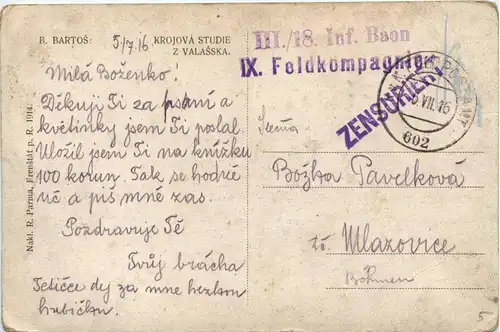 B. BARTOŠ: 5/7.16 KROJOVÁ STUDIE
Z VALAŠSKA.
Nakl. R. Parma, Frenštát p. R. 1914.
III./18. Inf. Baon
IX. Feldkompagnie
ZENSURIERT
VII. 16
602
Milá Boženko!
Děkuji Ti za psaní a
květinky jsem Ti poslal
Uložil jsem Ti na knížku
100 korun. Tak se hodně
uč a piš mně zas.
Pozdravuje Tě
Tvůj brácha
Tetičce dej za mne hezkou
hubičku.
Slečna
Božka Pavelková
Mlazovice
Böhmen
5